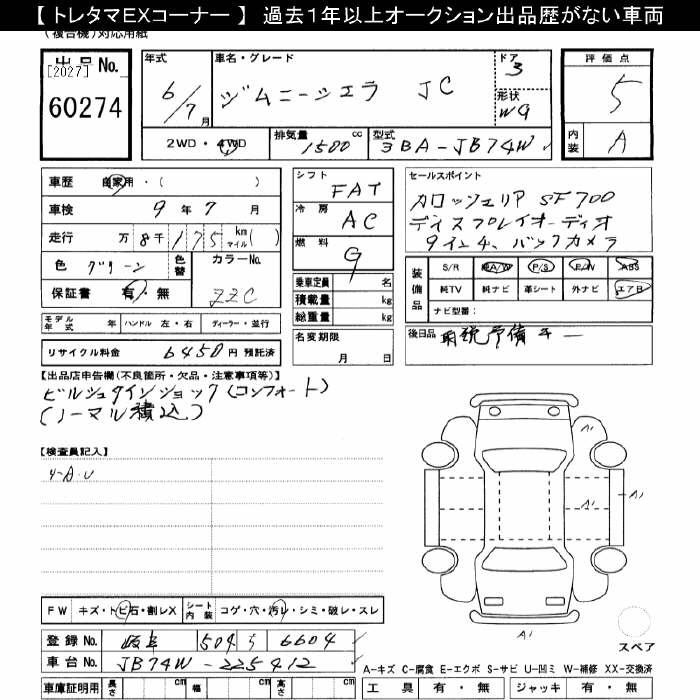 【トレタマEXコーナー】 過去1年以上オークション出品歴がない車両
(複合機)対応用紙
出品No.
[2027]
60274
年式
6/7月
車名・グレード
ジムニーシエラ JC
ドア
3
形状
WG
評価点
5
内装
A
2WD・4WD
排気量
1500 cc
型式
3BA-JB74W
車歴 自家用・( )
車検 9年7月
走行 万8千175 km マイル( )
色 グリーン 色替 カラーNo.
ZZC
保証書 有・無
シフト
FAT
冷房
AC
燃料
G
乗車定員 名
積載量 kg
総重量 kg
名変期限
月 日
セールスポイント
カロッツェリア SF700
ディスプレイオーディオ
9インチ、バックカメラ
装備品
S/R 純A/W P/S P/W ABS
純TV 純ナビ 革シート 外ナビ エアB
ナビ型番:
後日品 取説予備キー
モデル年式 年 ハンドル 左・右 ディーラー・並行
リサイクル料金 6450円 預託済
【出品店申告欄(不良箇所・欠品・注意事項等)】
ビルシュタインショック(コンフォート)
(ノーマル積込)
【検査員記入】
4-A.U
A1
A1
A1
A1
スペア
FW キズ・トビ石・割レX シート内装 コゲ・穴・汚レ・シミ・破レ・スレ
登録No. 岐阜 504 ら 6604
車台No. JB74W-225412
A-キズ C-腐食 E-エクボ S-サビ U-凹ミ W-補修 XX-交換済
車庫証明用 長さ cm 幅 cm 高さ cm
工具 有・無 ジャッキ 有・無